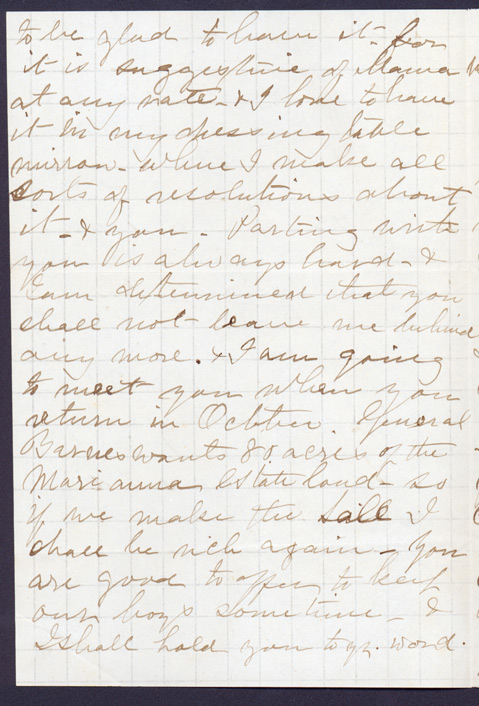 to be glad to have it - for
it is suggestive of Mama
at any rate - & I love to have
it in my dressing table
mirror - where I make all
sorts of resolutions about
it - & you - Parting with
you is always hard - &
I am determined that you
shall not leave me behind
any more. & I am going
to meet you when you
return in October. General
Barnes wants 80 acres of the
Marianna Estate land - so
if we make the sale I
shall be rich again - You
are good to offer to keep
our boys sometime - &
I shall hold you to yr. word.